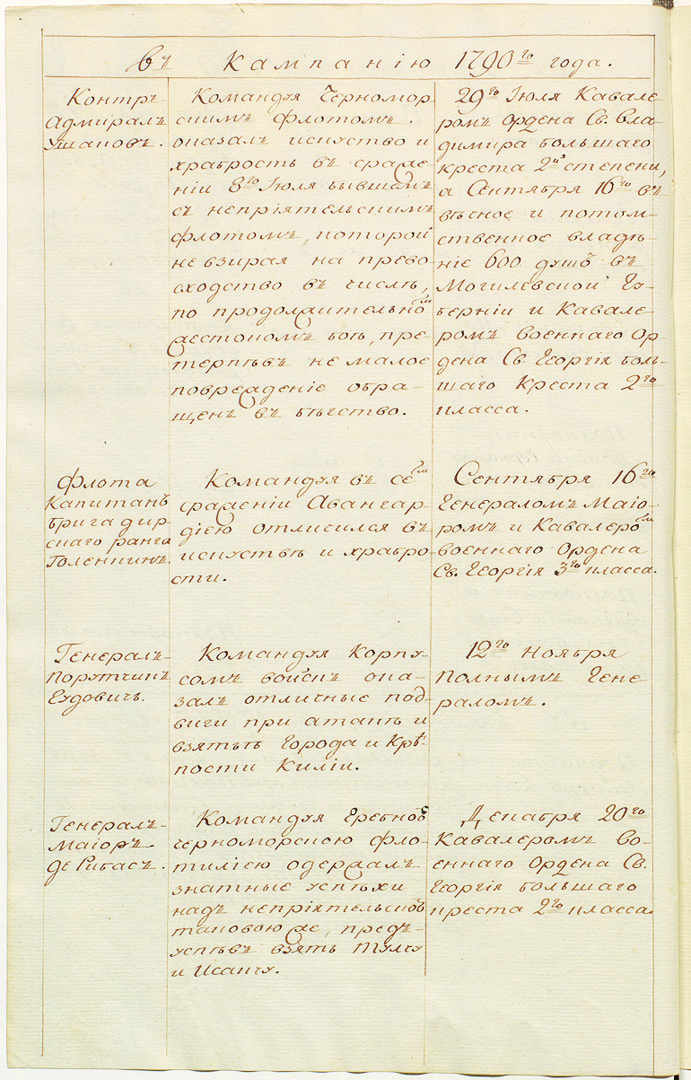 въ Кампанію 1790го года.
Контръ-
Адмиралъ
Ушаковъ.
Командуя Черномор-
скимъ флотомъ.
оказалъ искуство и
храбрость въ сраже-
ніи 8го Іюля бывшемъ
съ непріятельскимъ
флотомъ, которой
не взирая на прево-
сходство въ числѣ,
по продолжительномъ
жестокомъ боѣ, пре-
терпѣвъ не малое
поврежденіе обра-
щенъ въ бѣгство.
29го Іюля Кавале-
ромъ ордена Св. Вла-
димира большаго
креста 2й степени,
а Сентября 16го въ
вѣчное и потом-
ственное владѣ-
ніе 600 душъ въ
Могилевской Гу-
берніи и Кавале-
ромъ военнаго Ор-
дена Св. Георгія боль-
шаго Креста 2го
класса.
Флота
Капитанъ
бригадир-
скаго ранга
Голенкинъ.
Командуя въ семъ
сраженіи Авангар-
діею отличился въ
искуствѣ и храбро-
сти.
Сентября 16го
Генераломъ Маіо-
ромъ и Кавалеромъ
военнаго Ордена
Св. Георгія 3го класса.
Генералъ-
Порутчикъ
Гудовичъ.
Командуя Корпу-
сомъ войскъ ока-
залъ отличные под-
виги при атакѣ и
взятьѣ Города и Крѣ-
пости Киліи.
12го Ноября
Полнымъ Гене-
раломъ.
Генералъ-
Маіоръ
де Рибасъ.
Командуя Гребною
Черноморскою фло-
тиліею одержалъ
знатные успѣхи
надъ непріятельскою
таковою же, предъ-
успѣвъ взять Тулчу
и Исакчу.
Декабря 20го
Кавалеромъ во-
еннаго Ордена Св.
Георгія большаго
креста 2го класса.